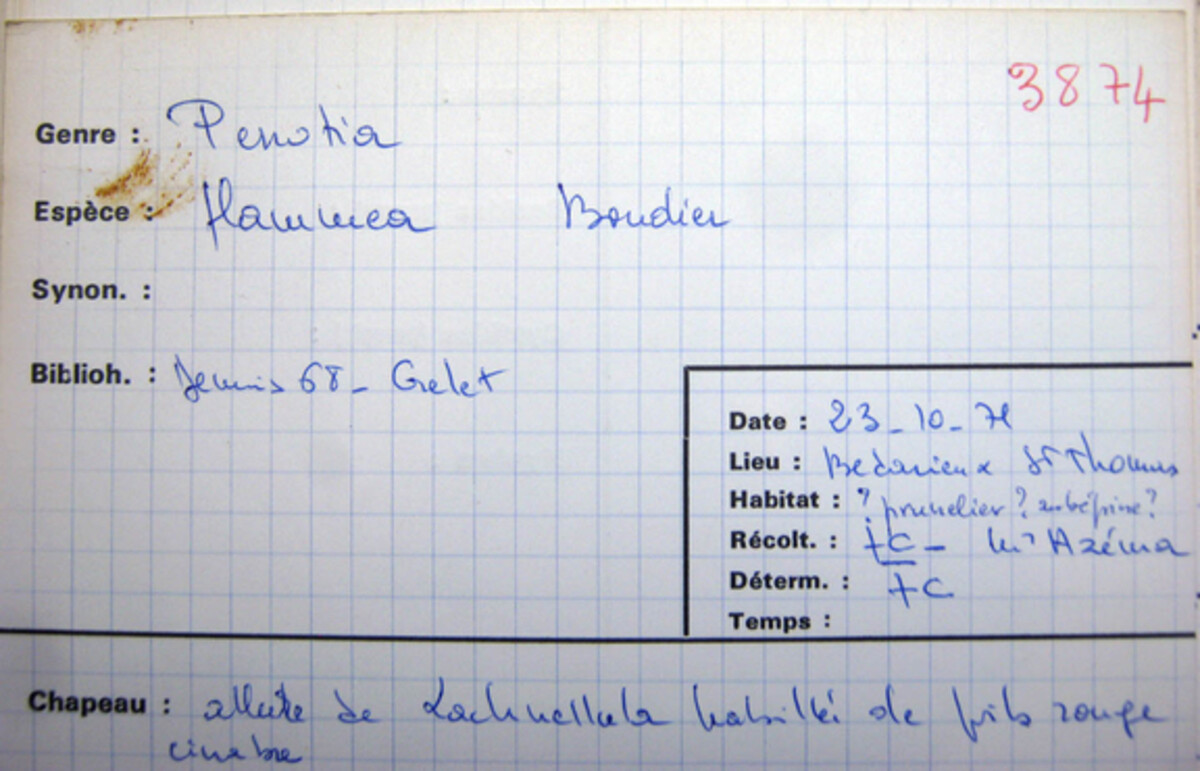 3874
Genre : Perrotia
Espèce : flammea Boudier
Synon. :
Biblioh. : Dennis 68 - Grelet
Date : 23 - 10 - 71
Lieu : Bédarieux St Thomas
Habitat : ? prunelier ? aubépine ?
Récolt. : FC - Mr Azéma
Déterm. : FC
Temps :
Chapeau : allure de Lachnellula habillé de poils rouge
cinabre